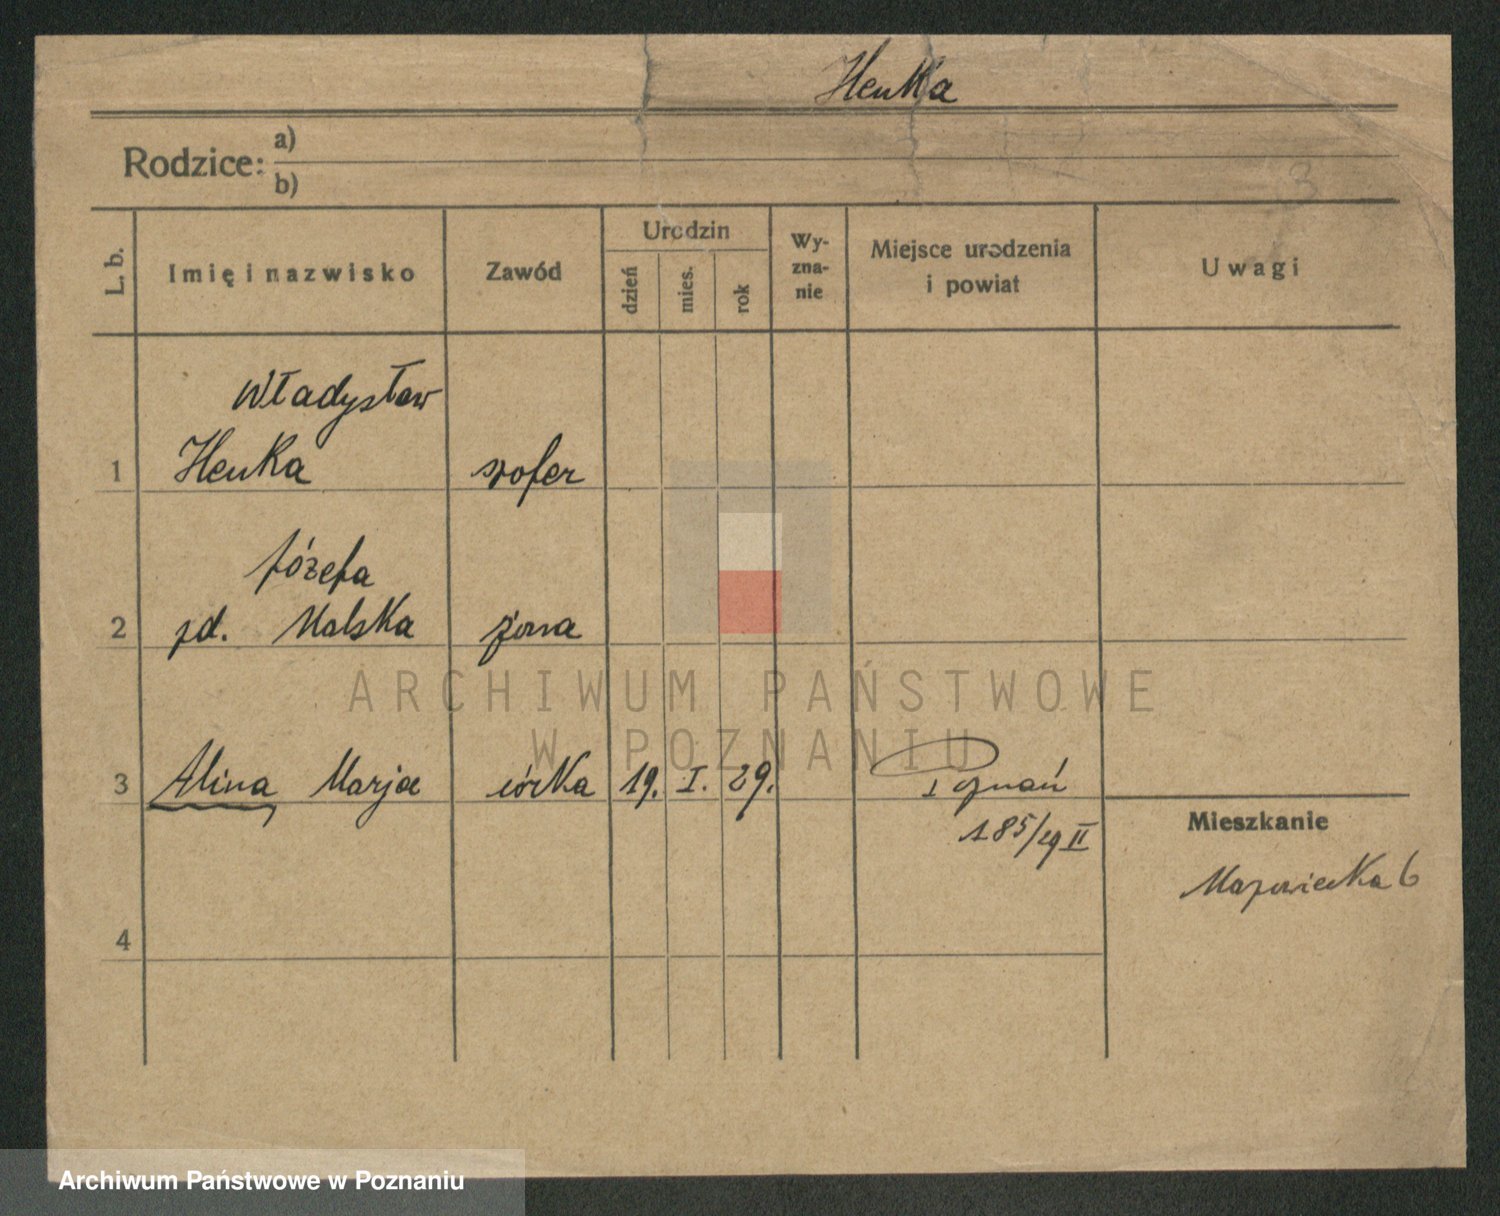 Henka
Rodzice: a)
b)
3
L. b.
Imię i nazwisko
Zawód
Urodzin
dzień
mies.
rok
Wy-
zna-
nie
Miejsce urodzenia
i powiat
Uwagi
Władysław
1 Henka szofer
Józefa
2 zd. Malska żona
3 Alina Marja córka 19. I. 29. Poznań
185/29 II
Mieszkanie
Mazowiecka 6
4
ARCHIWUM PAŃSTWOWE
W POZNANIU
Archiwum Państwowe w Poznaniu